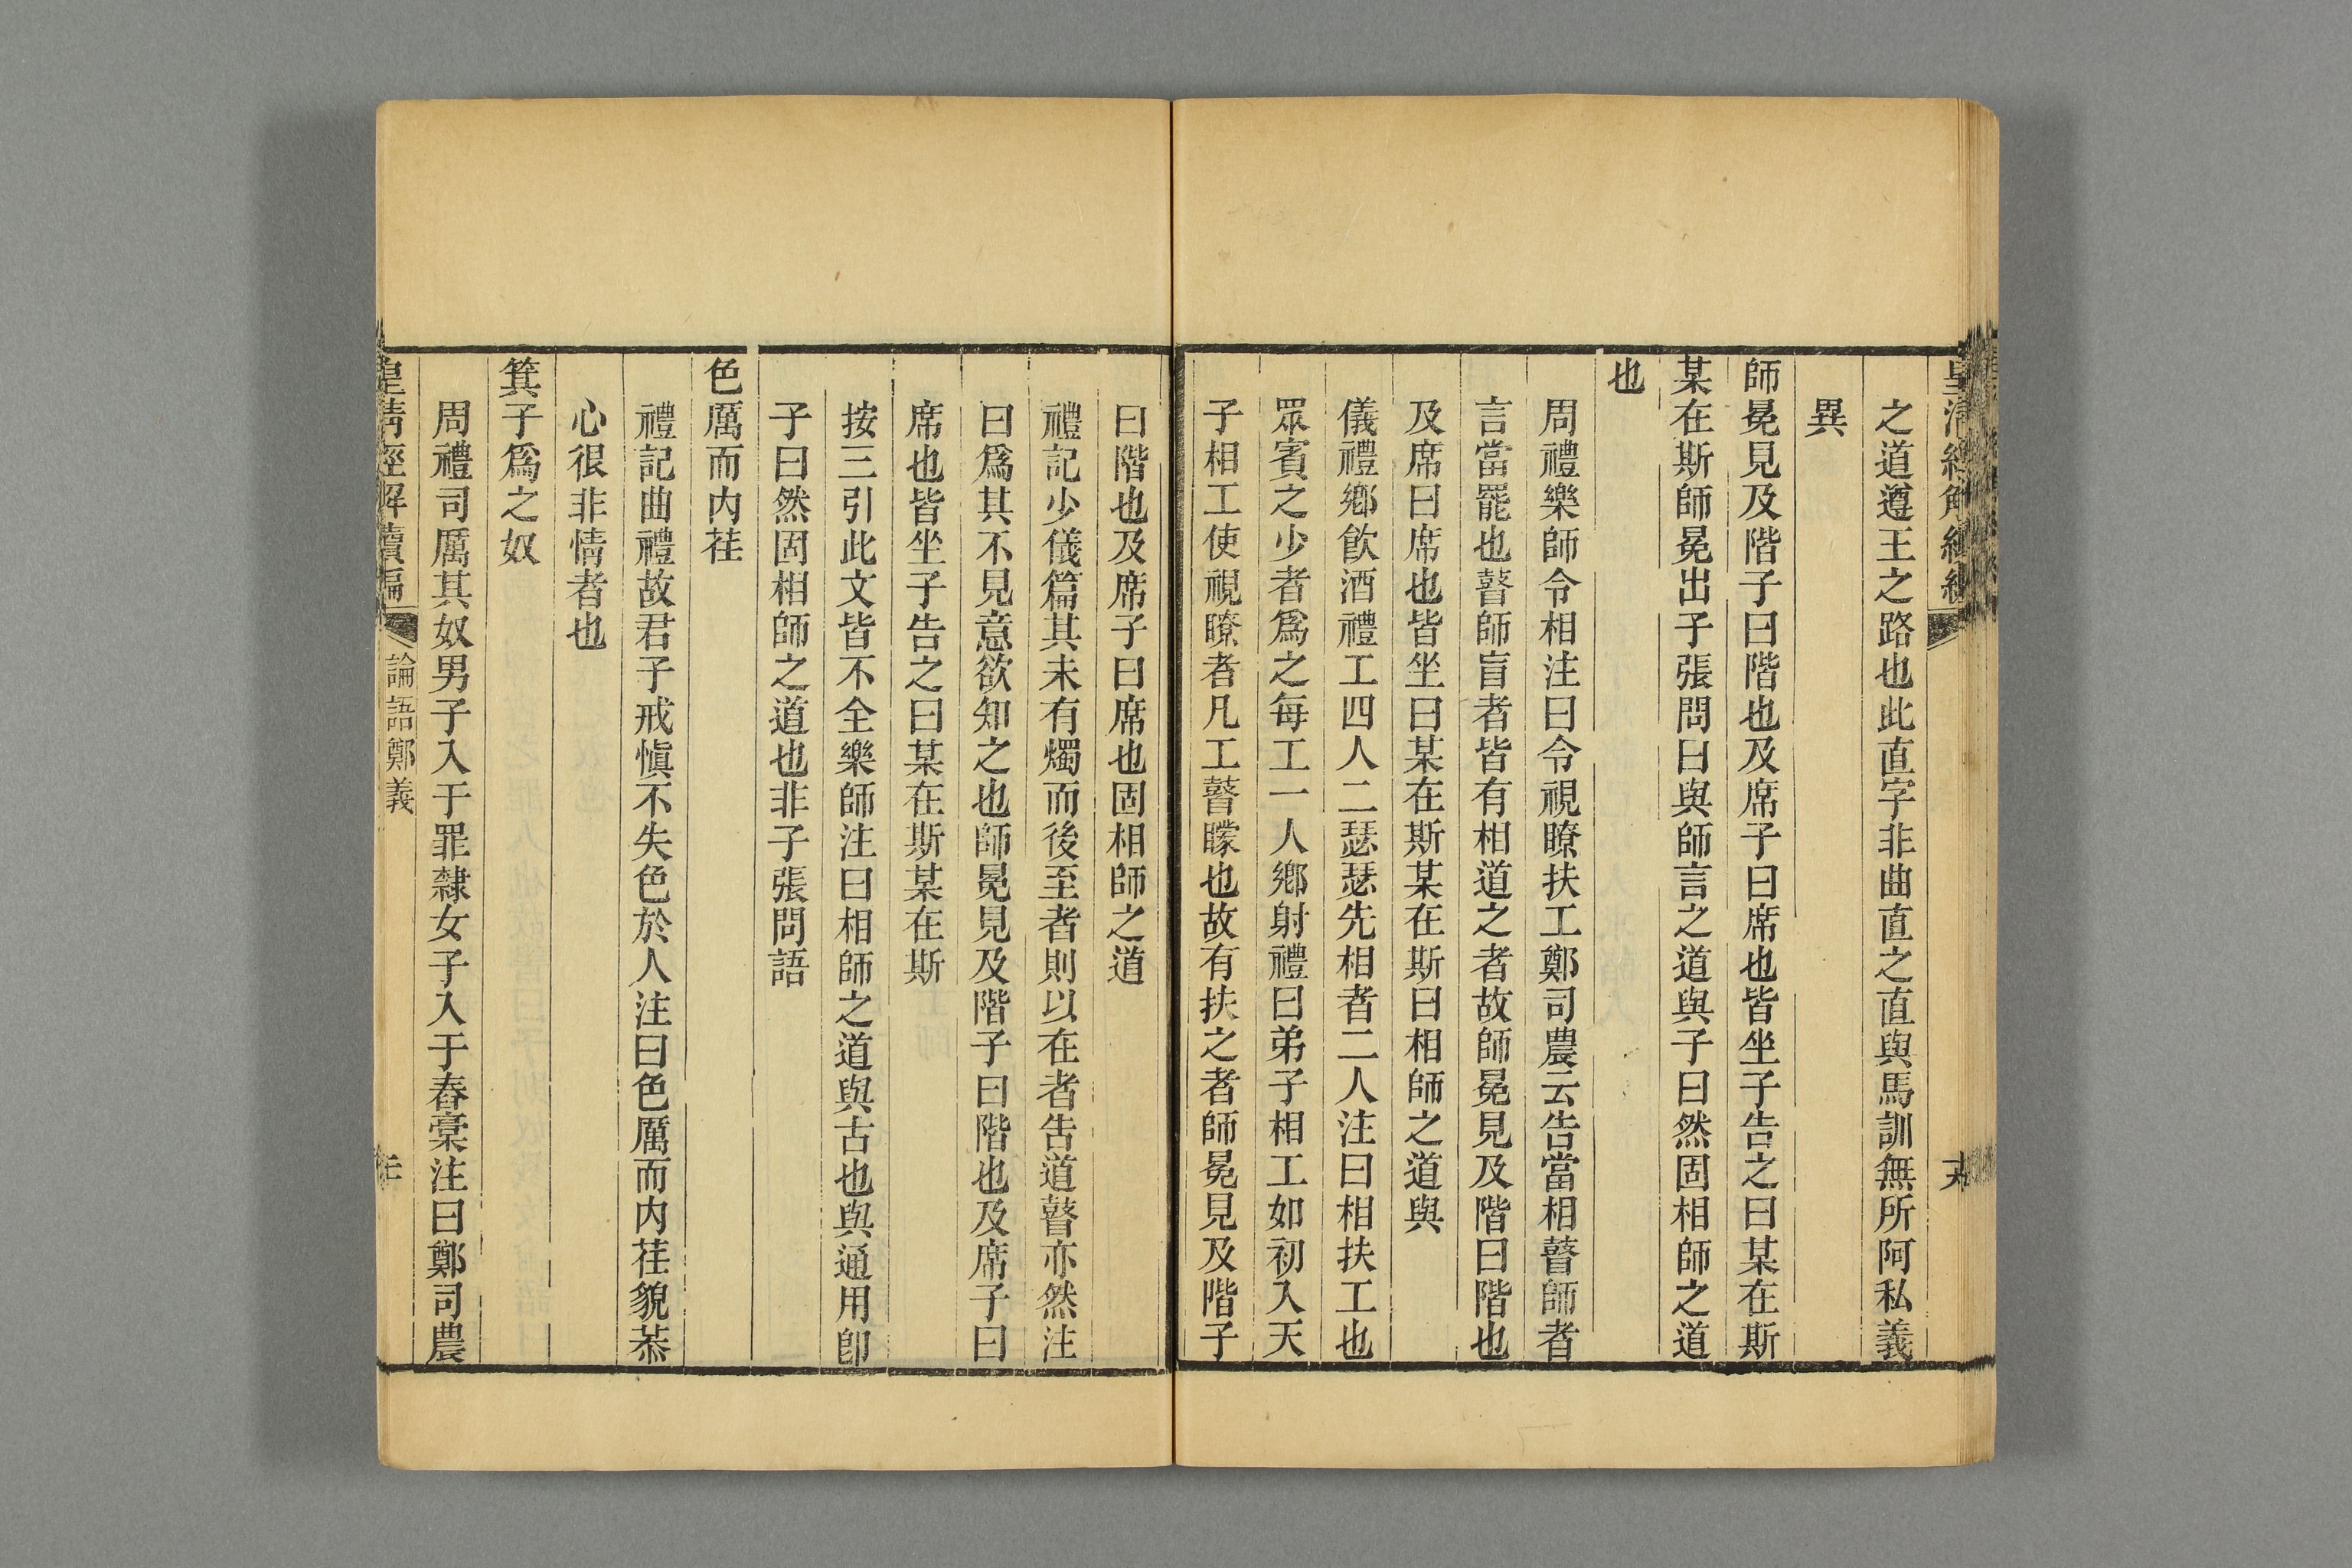 之道遵王之路也此直字非曲直之直與馬訓無所阿私義
異
師冕見及階子曰階也及席子曰席也皆坐子告之曰某在斯
某在斯師冕出子張問曰與師言之道與子曰然固相師之道
也
周禮樂師令相注曰令視瞭扶工鄭司農云告當相瞽師者
言當罷也瞽師盲者皆有相道之者故師冕見及階曰階也
及席曰席也皆坐曰某在斯某在斯曰相師之道與
儀禮鄉飲酒禮工四人二瑟瑟先相者二人注曰相扶工也
眾賓之少者爲之每工一人鄉射禮曰弟子相工如初入天
子相工使視瞭者凡工瞽矇也故有扶之者師冕見及階子
曰階也及席子曰席也固相師之道
禮記少儀篇其未有燭而後至者則以在者告道瞽亦然注
曰爲其不見意欲知之也師冕見及階子曰階也及席子曰
席也皆坐子告之曰某在斯某在斯
按三引此文皆不全樂師注曰相師之道與古也與通用卽
子曰然固相師之道也非子張問語
色厲而内荏
禮記曲禮故君子戒愼不失色於人注曰色厲而内荏貌恭
心很非情者也
箕子爲之奴
周禮司厲其奴男子入于罪隸女子入于舂稾注曰鄭司農
皇清經解續編
論語鄭義